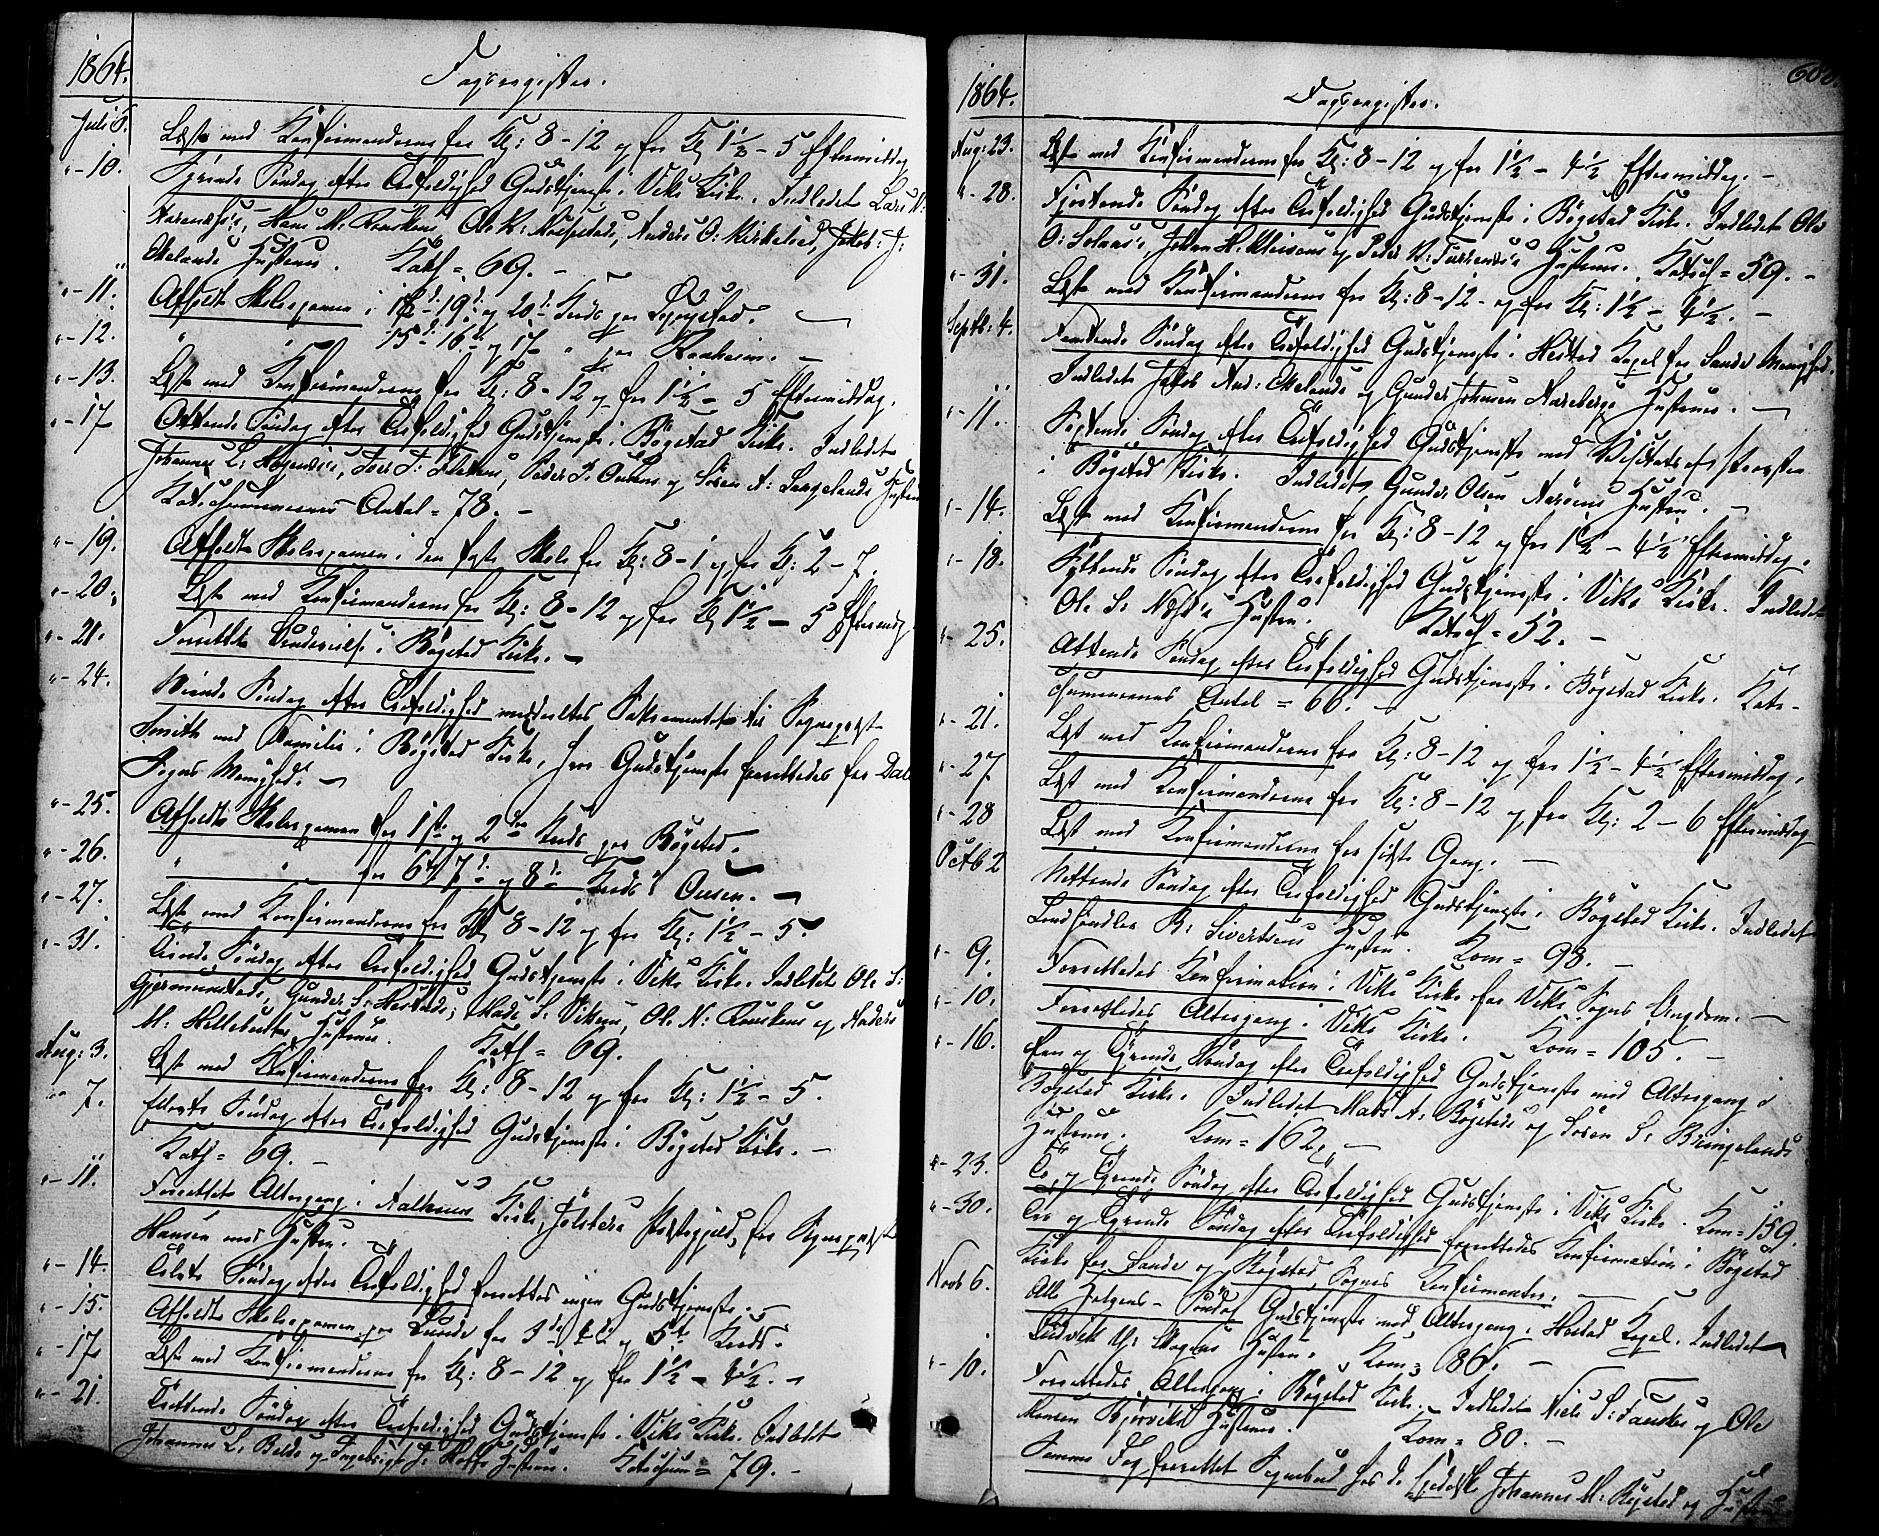 1864.
Dagsregister.
Juli 6. Læst med Konfirmanderne fra Kl: 8-12 og fra Kl 1½-5 Eftermiddag
"-10. Syvende Søndag efter Trefoldighed Gudstjeneste i Viks Kirke. Indledet Lars
Hans M: Anders O: Kirkelied, Jakob J:
Hustruer. Kath = 69. -
"-11. Afholdt Skoleexamen i 18de 19de og 20de Kreds paa
"-12. " " 15de 16de og 17de " paa
"-13. Læst med Konfirmanderne fra Kl: 8-12 og fra 1½-5 Eftermiddag.
"-17 Ottende Søndag efter Trefoldighed Gudstjeneste i Bøgstad Kirke. Indledet
Johannes L: Peder og Søren A: Hustruer
Katechumenernes Antal = 78. -
"-19. Afholdt Skoleexamen i den faste Skole fra Kl: 8-1 og fra Kl: 2-7.
"-20. Læst med Konfirmanderne fra Kl: 8-12 og fra Kl 1½-5 Eftermidg
"-21. Forrettet i Bøgstad Kirke. -
"-24. Niende Søndag efter Trefoldighed meddeltes Sakramentet til Sognepræst
Smith med Familie i Bøgstad Kirke, hvor Gudstjeneste forrettedes for Dals
Sogns Menighed. -
"-25. Afholdt Skoleexamen for 1ste og 2den Kreds paa Bøgstad.
"-26. " " for 6te 7de og 8de Kreds i -
"-27. Læst med Konfirmanderne fra Kl 8-12 og fra Kl: 1½-5.
"-31. Tiende Søndag efter Trefoldighed Gudstjeneste i Viks Kirke. Indledet Ole S:
Gjermundstads, Gunder S: Hestads, Mads S: Ole N: og Anders
M: Hustruer. Kath = 69.
Aug: 3. Læst med Konfirmanderne fra Kl: 8-12 og fra Kl: 1½-5.
"-7. Ellevte Søndag efter Trefoldighed Gudstjeneste i Bøgstad Kirke. -
Kath = 69. -
"-11. Forrettet Altergang i Aalhuus Kirke, Jølsters Præstegjeld, for Sognepræst
Hansen med Hustru. -
"-14. Tolvte Søndag efter Trefoldighed forrettes ingen Gudstjeneste. -
"-15. Afholdt Skoleexamen paa Lunde for 3die 4de og 5te Kreds.
"-17 Læst med Konfirmanderne fra Kl: 8-12 og fra 1½-4½. -
"-21. Trettende Søndag efter Trefoldighed Gudstjeneste i Viks Kirke. Indledet
Johannes L: og Ingebrigt J: Hustruer. Katechum = 79. -
1864.
Dagsregister.
Aug: 23. Læst med Konfirmanderne fra Kl: 8-12 og fra 1½-4½ Eftermiddag. -
"-28. Fjortende Søndag efter Trefoldighed Gudstjeneste i Bøgstad Kirke. Indledet Ole
O: Johan H: og Peder Hustruer. Katech = 59. -
"-31. Læst med Konfirmanderne fra Kl: 8-12 og fra Kl: 1½-4½. -
Septb: 4. Femtende Søndag efter Trefoldighed Gudstjeneste i Hestad Kapel for Sande Menighed.
Indledet Jakob And: og Gunder Johnsen Hustruer. -
"-11. Sextende Søndag efter Trefoldighed Gudstjeneste med Visitats af Provsten
i Bøgstad Kirke. Indledet Gunder Olsen Hustru. -
"-14. Læst med Konfirmanderne fra Kl: 8-12 og fra 1½-4½ Eftermiddag.
"-18. Syttende Søndag efter Trefoldighed Gudstjeneste i Viks Kirke. Indledet
Ole S: Hustru. Katech = 52. -
"-25. Attende Søndag efter Trefoldighed Gudstjeneste i Bøgstad Kirke. Kate-
chumenernes Antal = 66. -
"-21. Læst med Konfirmanderne fra Kl: 8-12 og fra 1½-4½ Eftermiddag.
"-27 Læst med Konfirmanderne fra Kl: 8-12 og fra Kl: 2-6 Eftermiddag
"-28 Læst med Konfirmanderne for sidste Gang. -
Octb 2 Nittende Søndag efter Trefoldighed Gudstjeneste i Bøgstad Kirke. Indledet
Landhandler R: Sivertsens Hustru. Kom = 98. -
"-9. Forrettedes Konfirmation i Viks Kirke for Viks Sogns Ungdom. -
"-10. Forrettedes Altergang i Viks Kirke. Kom = 105. -
"-16. Een og Tyvende Søndag efter Trefoldighed Gudstjeneste med Altergang i
Bøgstad Kirke. Indledet Mads A: Bøgstads og Søren S: Bringelands
Hustruer. Kom = 162. -
"-23. To og Tyvende Søndag efter Trefoldighed Gudstjeneste i Viks Kirke. Kom = 159.
"-30. Tre og Tyvende Søndag efter Trefoldighed forrettedes Konfirmation i Bøgstad
Kirke for Sande og Bøgstad Sognes Konfirmanter. -
Novb 6. Alle Helgens-Søndag Gudstjeneste med Altergang i Hestad Kapel. Indledet
Hustru. Kom = 86. -
"-10. Forrettedes Altergang i Bøgstad Kirke. Indledet Niels S: og Ole
Monsen Hustruer. Kom = 80. -
Samme Dag forrettet Sognebud hos de Johannes M: Bøgstad og Hustru